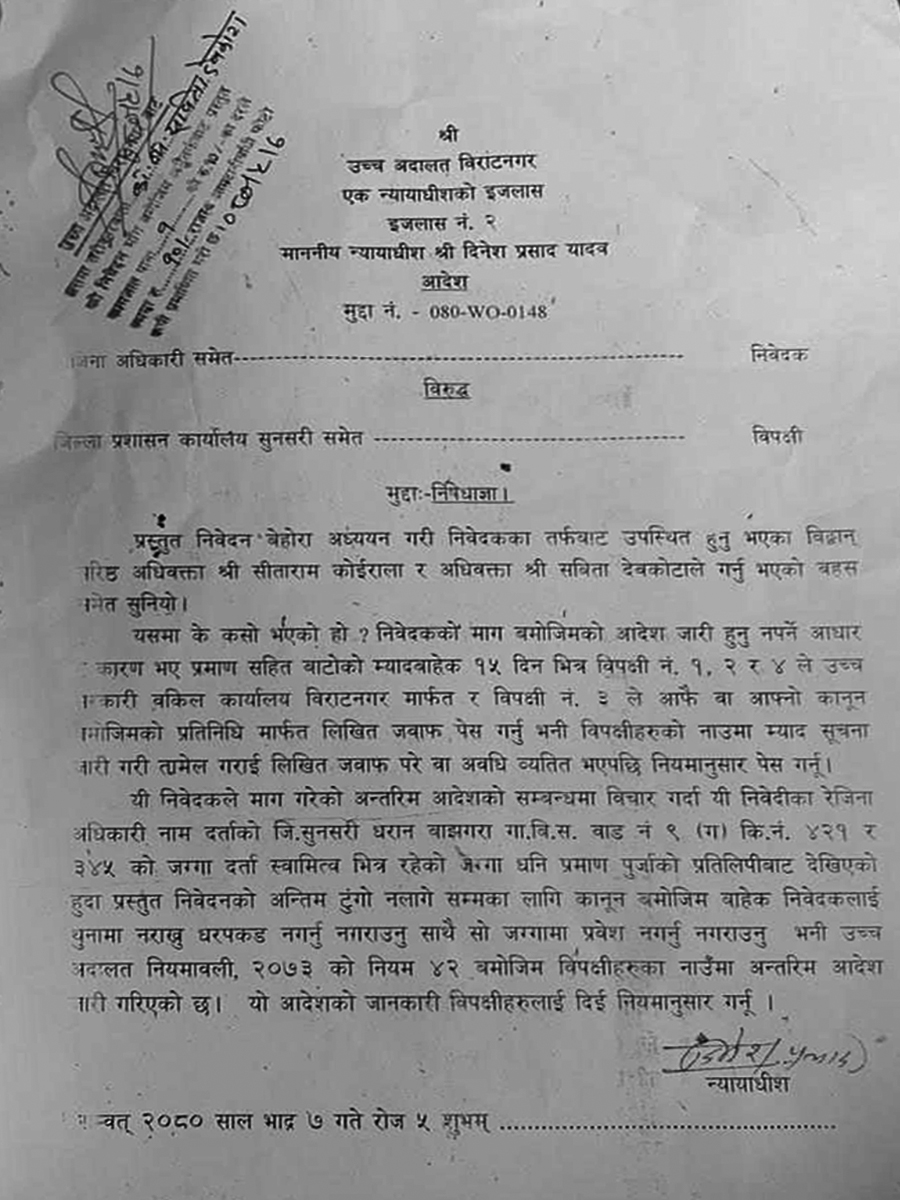 श्री
उच्च अदालत विराटनगर
एक न्यायाधीशको इजलास
इजलास नं. २
माननीय न्यायाधीश श्री दिनेश प्रसाद यादव
आदेश
मुद्दा नं. - 080-WO-0148
जिना अधिकारी समेत------------------------------------------------ निवेदक
विरुद्ध
जिल्ला प्रशासन कार्यालय सुनसरी समेत --------------------------------- विपक्षी
मुद्दाः-निषेधाज्ञा।
प्रस्तुत निवेदन बेहोरा अध्ययन गरी निवेदकका तर्फबाट उपस्थित हुनु भएका विद्वान्
रिष्ठ अधिवक्ता श्री सीताराम कोईराला र अधिवक्ता श्री सबिता देवकोटाले गर्नु भएको बहस
मेत सुनियो।
यसमा के कसो भएको हो ? निवेदकको माग बमोजिमको आदेश जारी हुनु नपर्ने आधार
कारण भए प्रमाण सहित बाटोको म्यादबाहेक १५ दिन भित्र विपक्षी नं. १, २ र ४ ले उच्च
कारी वकिल कार्यालय विराटनगर मार्फत र विपक्षी नं. ३ ले आफै वा आफ्नो कानून
मोजिमको प्रतिनिधि मार्फत लिखित जवाफ पेस गर्नु भनी विपक्षीहरुको नाउमा म्याद सूचना
जारी गरी तामेल गराई लिखित जवाफ परे वा अवधि व्यतित भएपछि नियमानुसार पेस गर्नू।
यी निवेदकले माग गरेको अन्तरिम आदेशको सम्बन्धमा विचार गर्दा यी निवेदीका रेजिना
अधिकारी नाम दर्ताको जि.सुनसरी धरान बाझगरा गा.वि.स. वाड नं ९ (ग) कि.नं. ४२१ र
३४५ को जग्गा दर्ता स्वामित्व भित्र रहेको जग्गा धनि प्रमाण पुर्जाको प्रतिलिपीबाट देखिएको
हुदा प्रस्तुत निवेदनको अन्तिम टुंगो नलागे सम्मका लागि कानून बमोजिम बाहेक निवेदकलाई
थुनामा नराखु धरपकड नगर्नु नगराउनु साथै सो जग्गामा प्रवेश नगर्नु नगराउनु भनी उच्च
अदालत नियमावली, २०७३ को नियम ४२ बमोजिम विपक्षीहरुका नाउँमा अन्तरिम आदेश
जारी गरिएको छ। यो आदेशको जानकारी विपक्षीहरुलाई दिई नियमानुसार गर्नू ।
न्यायाधीश
म्वत् २०८० साल भाद्र ७ गते रोज ५ शुभम् ..........................................